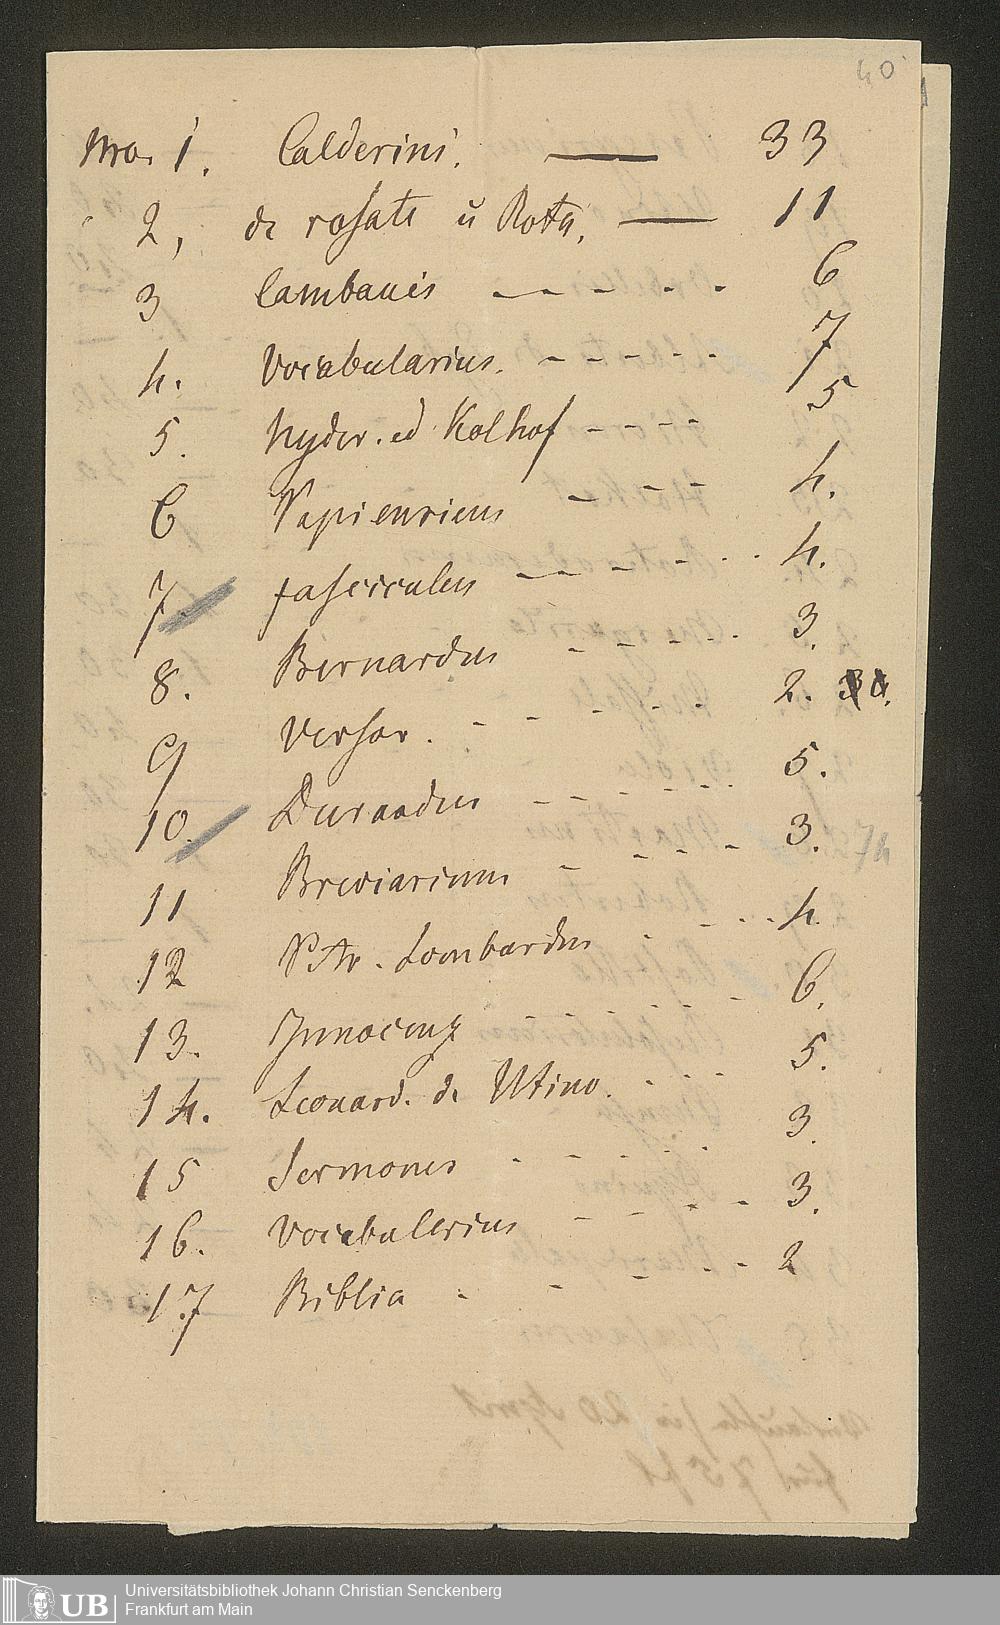 40
Nro. 1. Calderini. — 33
2, de rosate u Rota. — 11
3 Cambanis - - - - - 6
4. Vocabularius. - - - - - 7
5. Nyder. ed Kolhof - - - - 5
6 - - - - 4.
7 fasciculus - - - - - - 4.
8. Bernardus - - - - - 3.
9 Versor. - - - - - - 2.
10. Durandus - - - - - - 5.
11 Breviarium - - - - - 3.
12 Petr. Lombardus - - - - 4.
13. Innocenz - - - - - 6.
14. Leonard. de Utino. - - - 5.
15 Sermones - - - - - 3.
16. Vocabularius - - - - - 3.
17 Biblia - - - - - 2
74
UB
Universitätsbibliothek Johann Christian Senckenberg
Frankfurt am Main